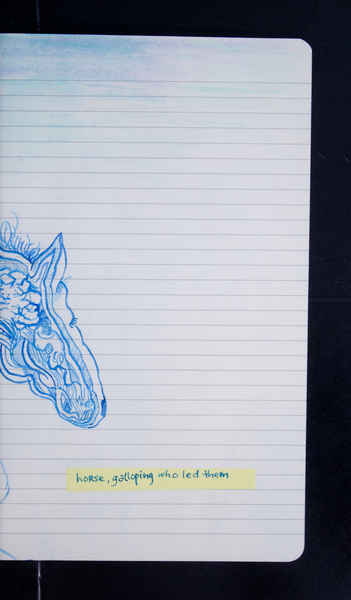 horse, galloping who led them